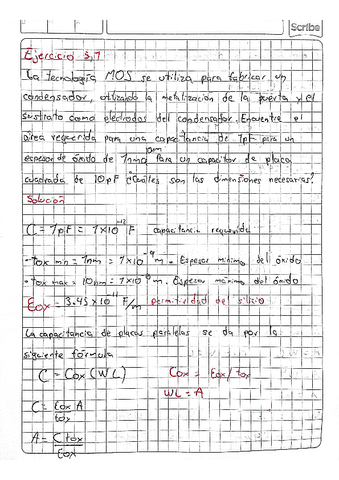 Scribe
Ejercicio 3,7
La Tecnología MOS se utiliza para fabricar un
condensador, utilizando la metalización de la puerta y el
sustrato como electrodos del condensador. Encuentre el
área requerida para una capacitancia de 1pF para un
espesor de óxido de 1nm. Para un capacitor de placa
cuadrada de 10pF ¿Cuáles son las dimensiones necesarias?
Solución
C = 1pF = 1X10⁻¹² F capacitancia requerida
-tox min = 1nm = 1X10⁻⁹ m. Espesor mínimo del óxido
-tox max = 10nm = 1X10 m. Espesor máximo del óxido
Eox = 3.45X10⁻¹¹ F/m permitividad del silicio
La capacitancia de placas paralelas se da por la
siguiente fórmula
C = Cox (WL) Cox = Eox/tox
WL = A
C = Eox A / tox
A = C tox / Eox